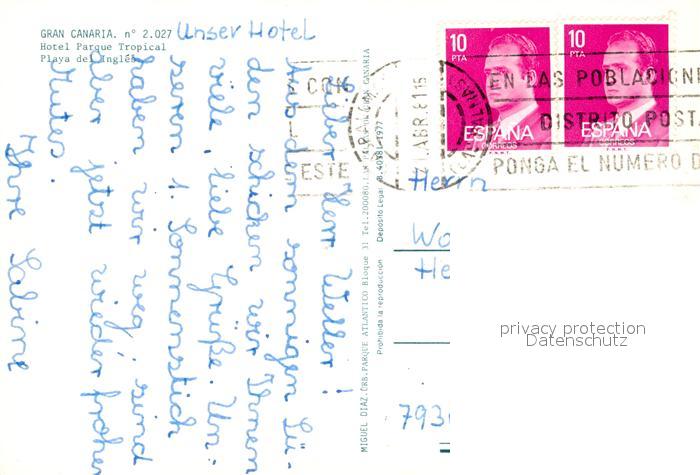 GRAN CANARIA. nº 2.027
Hotel Parque Tropical
Playa del Inglés
Unser Hotel
Lieber Herr Weller!
Aus dem sonnigen Sü-
den schicken wir Ihnen
viele liebe Grüße. Un-
seren 1. Sonnenstich
haben wir weg, sind
aber jetzt wieder frohen
Mutes.
Ihre Sabine
MIGUEL DIAZ.URB.PARQUE ATLANTICO Bloque 31 Tel.200080.LAS PALMAS DE GRAN CANARIA
Prohibida la reproducción
Depósito Legal B.40181-1977
10
PTA
ESPAÑA
CORREOS
10
PTA
ESPAÑA
CORREOS
ESTE
ABR.81 15
EN LAS POBLACIONE
DISTRITO POSTA
PONGA EL NUMERO D
Herrn
Wo
He
793
privacy protection
Datenschutz